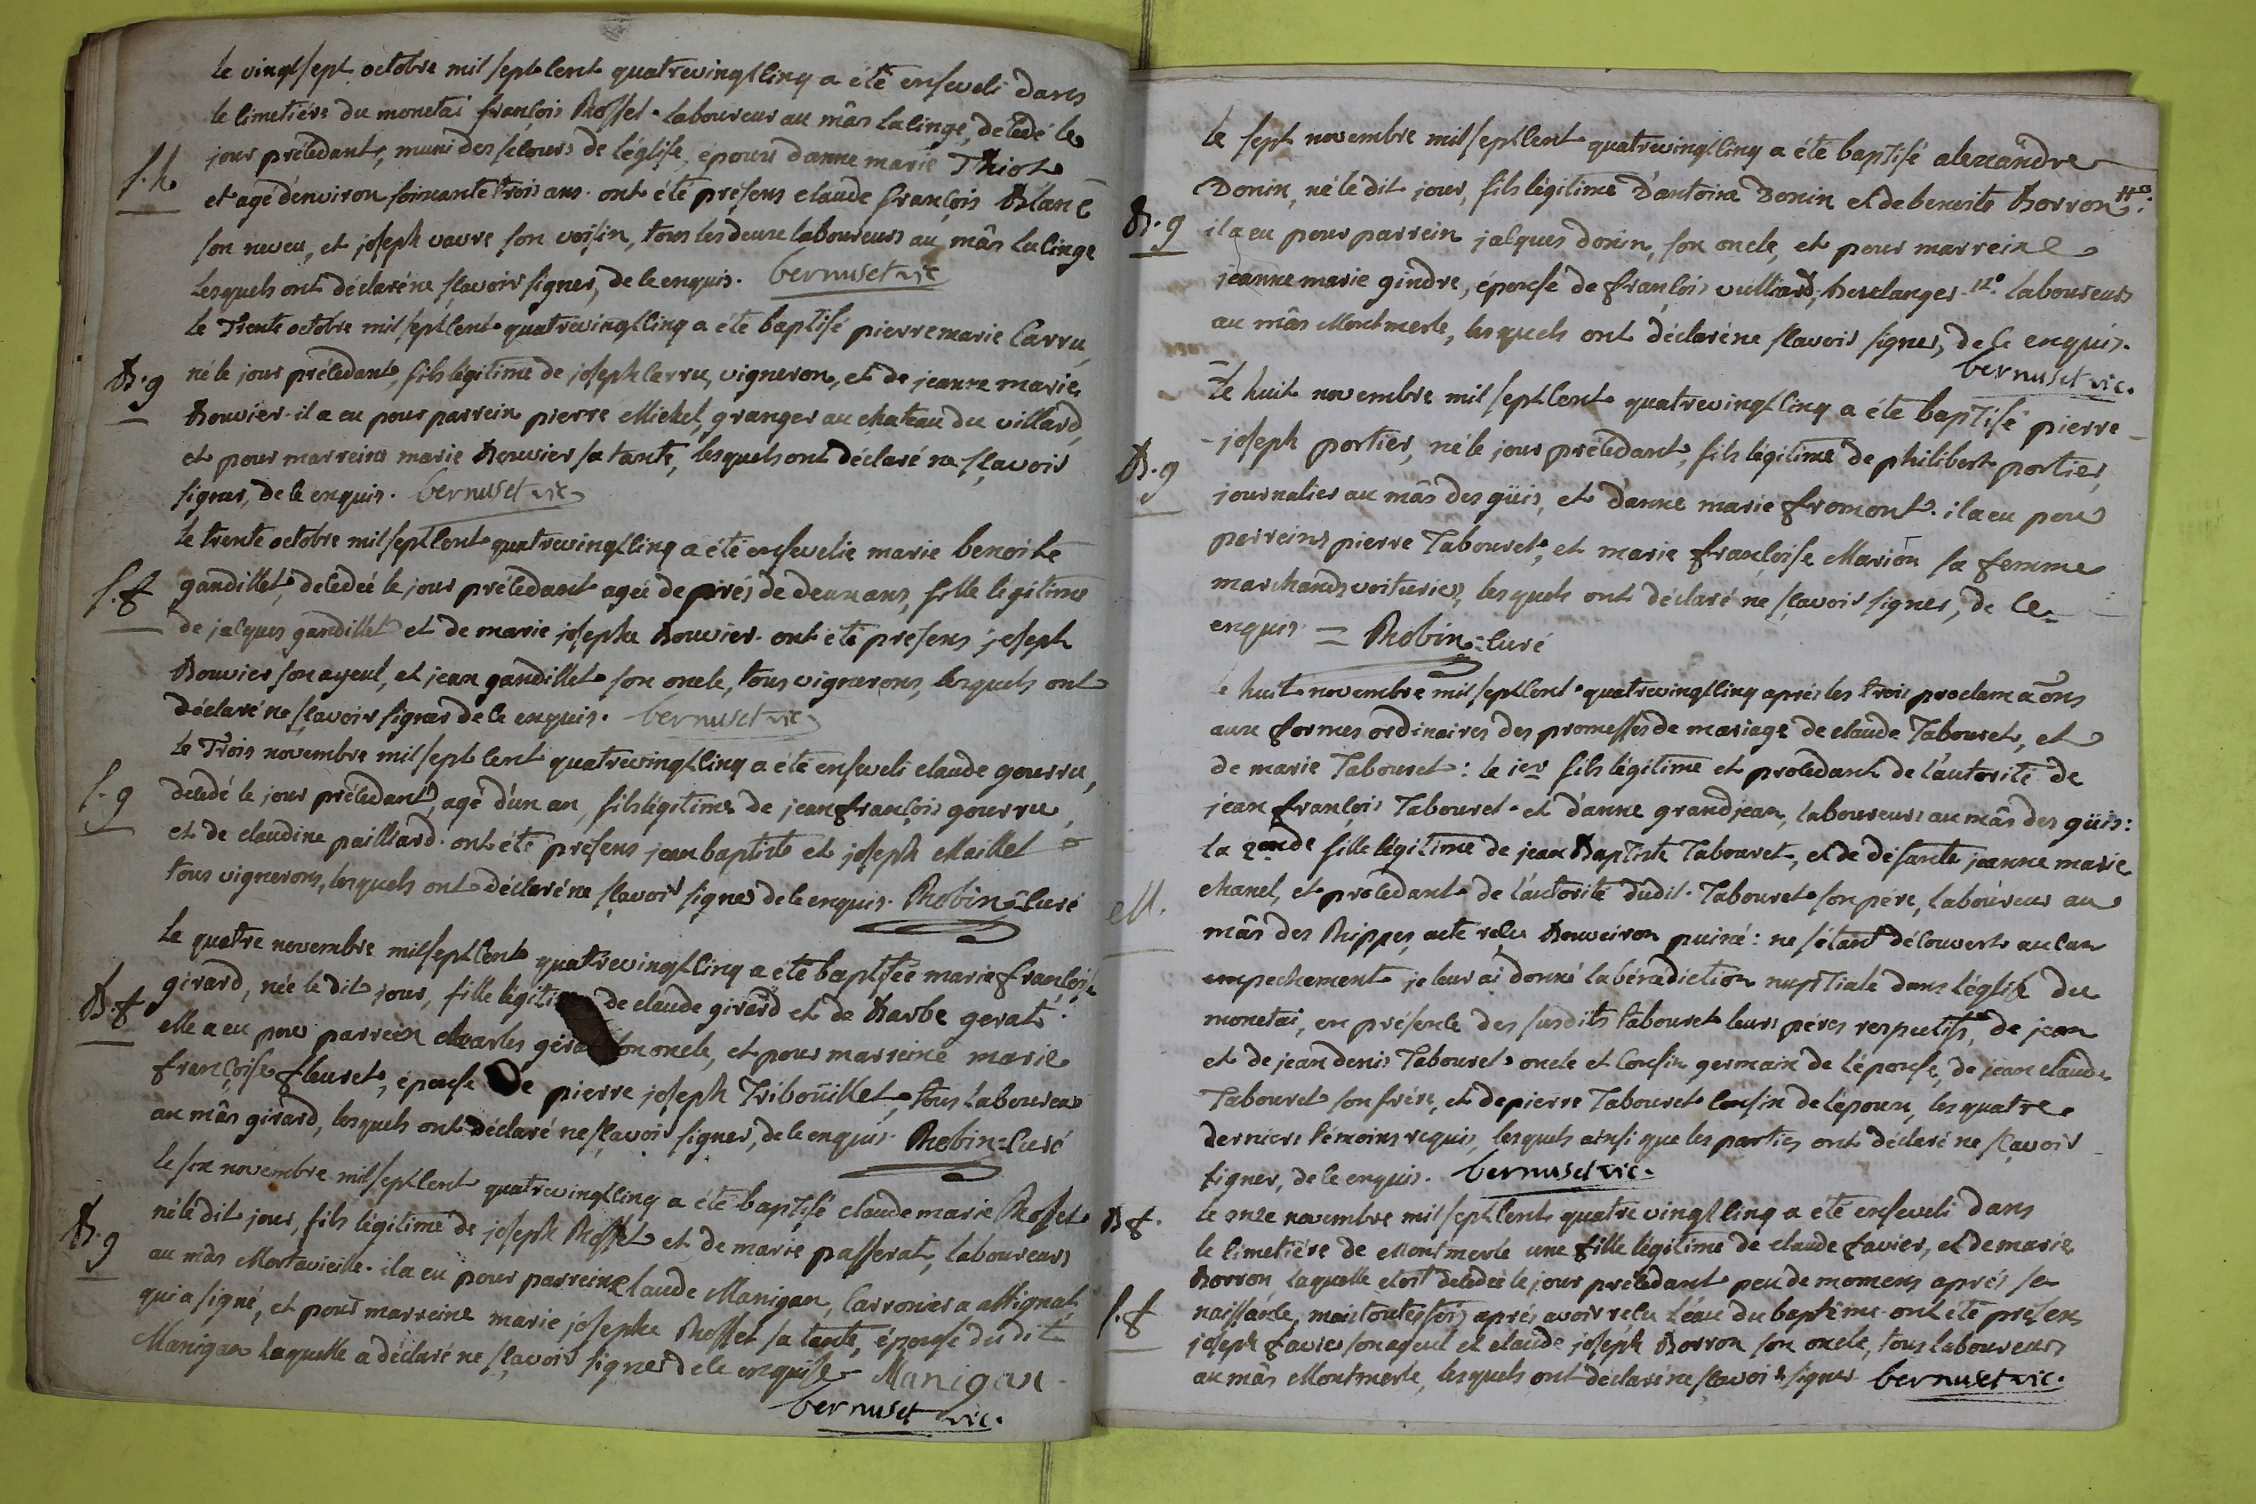 le vingt sept octobre mil sept cent quatrevingt cinq a été enseveli dans
le cimetiére du monetai françois Roffet laboureur au mâs la linge, décédé le
S.h jour précédant, muni des secours de léglise, époux danne marie Thiot
et agé d'environ soixante trois ans. ont été présens claude françois Blanc
son neveu, et joseph vavre son voisin, tous les deux laboureurs au mâs la linge
lesquels ont déclaré ne sçavoir signer, de ce enquis. bernuset vic
le Trente octobre mil sept cent quatrevingt cinq a été baptisé pierre marie Carru
B.g né le jour précédant, fils légitime de joseph Carru, vigneron, et de jeanne marie
Bouvier. il a eu pour parrein pierre Michel, granger au chateau du villard,
et pour marreine marie Bouvier sa tante, lesquels ont déclaré ne sçavoir
signer, de ce enquis. bernuset vic
le trente octobre mil sept cent quatrevingt cinq a été ensevelie marie benoite
S.f gandillet, décédée le jour précédant agée de prés de deux ans, fille légitime
de jacques gandillet et de marie josephe Bouvier. ont été présens joseph
Bouvier son ayeul, et jean gandillet son oncle, tous vignerons, lesquels ont
déclaré ne sçavoir signer de ce enquis. bernuset vic
le Trois novembre mil sept cent quatrevingt cinq a été enseveli claude gourru,
S.g décédé le jour précédant, agé d'un an, fils légitime de jean françois gourru,
et de claudine pailliard. ont été présens jean baptiste et joseph Maillet
tous vignerons, lesquels ont déclaré ne sçavoir signer de ce enquis. Robin = Curé
le quatre novembre mil sept cent quatrevingt cinq a été baptisée marie françoise
B.f girard, née le dit jour, fille légitime de claude girard et de Barbe gerat.
elle a eu pour parrein charles gerat son oncle, et pour marreine marie
françoise fleuret, épouse de pierre joseph Tribouillet, tous laboureurs
au mâs girard, lesquels ont déclaré ne sçavoir signer, de ce enquis. Robin = Curé
le six novembre mil sept cent quatrevingt cinq a été baptisé claude marie Roffet
B.g né le dit jour, fils légitime de joseph Roffet et de marie passerat, laboureurs
au mâs Mortavieille. il a eu pour parrein claude Manigan, Carronier a assignat
qui a signé, et pour marreine marie josephe Roffet sa tante, épouse du dit
Manigan laquelle a déclaré ne sçavoir signer de ce enquise. Manigan
bernuset vic.
le sept novembre mil sept cent quatrevingt cinq a été baptisé alexandre
Donin, né le dit jour, fils légitime D'antoine Donin et de benoite Borron
B.g il a eu pour parrein jacques donin, son oncle, et pour marreine
jeanne marie gindre, épouse de françois vuillard, laboureurs
au mâs Montmerle, lesquels ont déclaré ne sçavoir signer, de ce enquis.
bernuset vic.
le huit novembre mil sept cent quatrevingt cinq a été baptisé pierre
B.g joseph portier, né le jour précédant, fils légitime de philibert portier,
journalier au mâs des güis, et d'anne marie fromont. il a eu pour
parreins pierre Tabouret, et marie françoise Marion sa femme
marchands voituriers, lesquels ont déclaré ne sçavoir signer, de ce
enquis = Robin = Curé
le huit novembre mil sept cent quatrevingt cinq aprés les trois proclamâons
aux formes ordinaires des promesses de mariage de claude Tabouret, et
de marie Tabouret: le 1er fils légitime et procédant de l'autorité de
jean françois Tabouret et d'anne grandjean, laboureurs au mâs des güis:
la 2onde fille légitime de jean Baptiste Tabouret, et de défunte jeanne marie
M. chanel, et procédant de l'autorité dudit Tabouret son pére, laboureur au
mâs des Rippes, acte reçu Bouveiron puiné: ne s'étant découvert aucun
empechement je leur ai donné la bénédiction nuptiale dans l'église du
monetai, en présence des susdits Tabouret leurs péres respectifs, de jean
et de jean denis Tabouret oncle et Cousin germain de l'épouse, de jean claude
Tabouret son frére, et de pierre Tabouret cousin de l'époux, les quatre
derniers témoins requis, lesquels ainsi que les parties ont déclaré ne sçavoir
signer, de ce enquis. bernuset vic.
B f. le onze novembre mil sept cent quatre vingt cinq a été enseveli dans
le cimetiére de Montmerle une fille légitime de claude favier, et de marie
Borron laquelle etoit décédée le jour précédant peu de momens aprés sa
S.f naissance, mais toutes fois aprés avoir reçu l'eau du baptême. ont été présens
joseph favier son ayeul et claude joseph Borron son oncle, tous laboureurs
au mâs Montmerle, lesquels ont déclaré ne sçavoir signer bernuset vic.